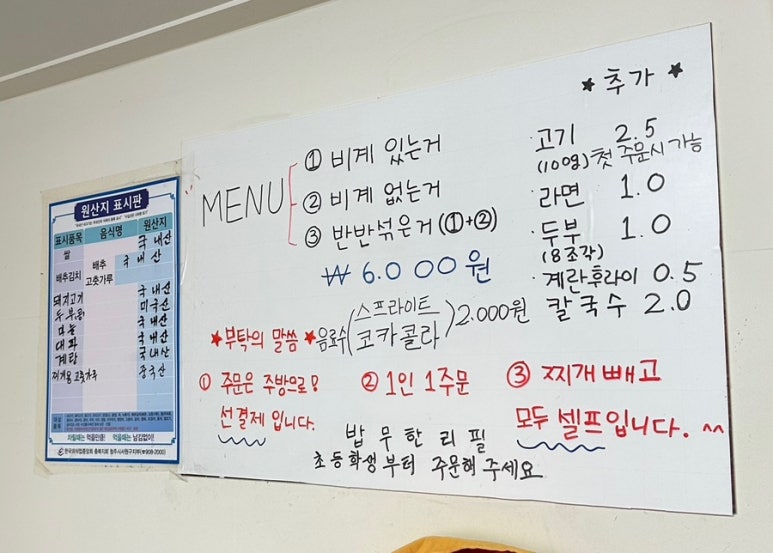 원산지 표시판
표시품목 음식명 원산지
쌀 국내산
배추김치 배추 국내산
고춧가루
돼지고기 국내산
두부콩 미국산
마늘 국내산
대파 국내산
계란 국내산
찌개용 고춧가루 중국산
차릴때는 먹을만큼! 먹을때는 남김없이!
한국외식업중앙회 충북지회 청주시서원구지부(☎908-2000)
MENU
① 비계 있는거
② 비계 없는거
③ 반반섞은거(①+②)
₩ 6.000원
음료수(스프라이트
코카콜라)2.000원
★추가★
·고기 2.5
(100g)첫 주문시 가능
·라면 1.0
·두부 1.0
(8조각)
·계란후라이 0.5
칼국수 2.0
★부탁의 말씀★
① 주문은 주방으로!
선결제입니다.
② 1인 1주문
③ 찌개 빼고
모두 셀프입니다. ^^
밥 무한리필
초등학생부터 주문해 주세요